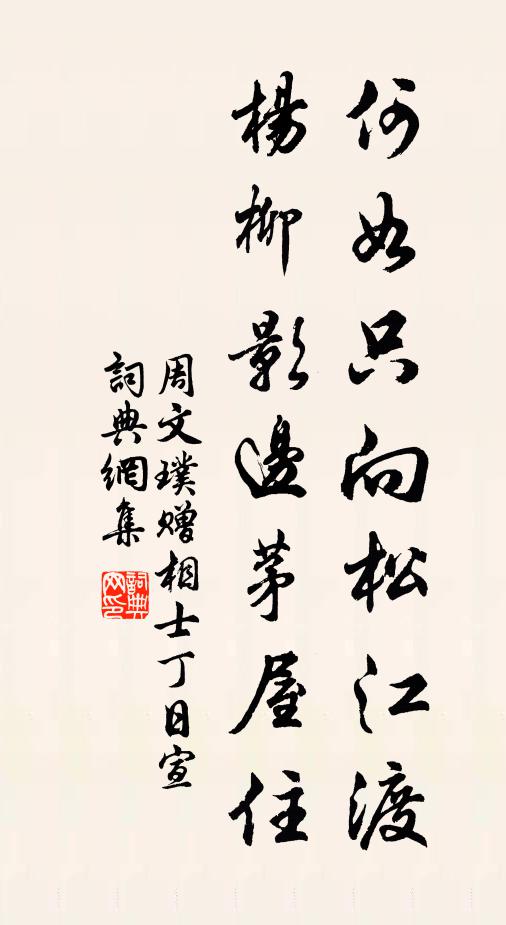 何如只向松江渡
楊柳影邊茅屋住
周文璞贈相士丁日宣
詞典網集
詞典網印